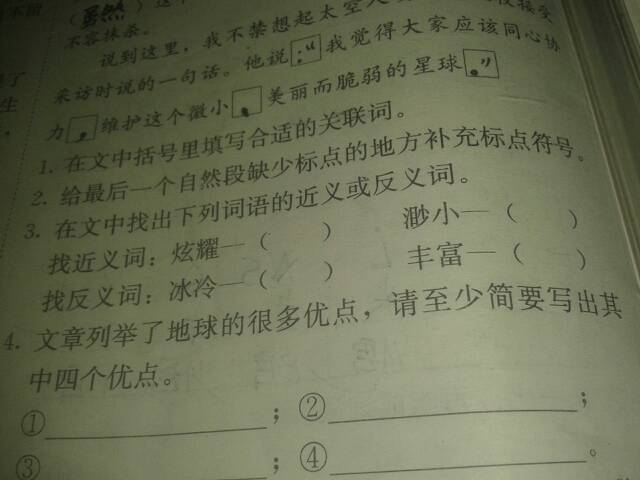 (虽然)这
不容抹杀。
说到这里，我不禁想起太空人
采访时说的一句话。他说：“我觉得大家应该同心协
力，维护这个微小、美丽而脆弱的星球。”
1. 在文中括号里填写合适的关联词。
2. 给最后一个自然段缺少标点的地方补充标点符号。
3. 在文中找出下列词语的近义或反义词。
找近义词：炫耀—（ ） 渺小—（ ）
找反义词：冰冷—（ ） 丰富—（ ）
4. 文章列举了地球的很多优点，请至少简要写出其
中四个优点。
①＿＿＿＿＿＿；②＿＿＿＿＿＿；
③＿＿＿＿＿＿；④＿＿＿＿＿＿。